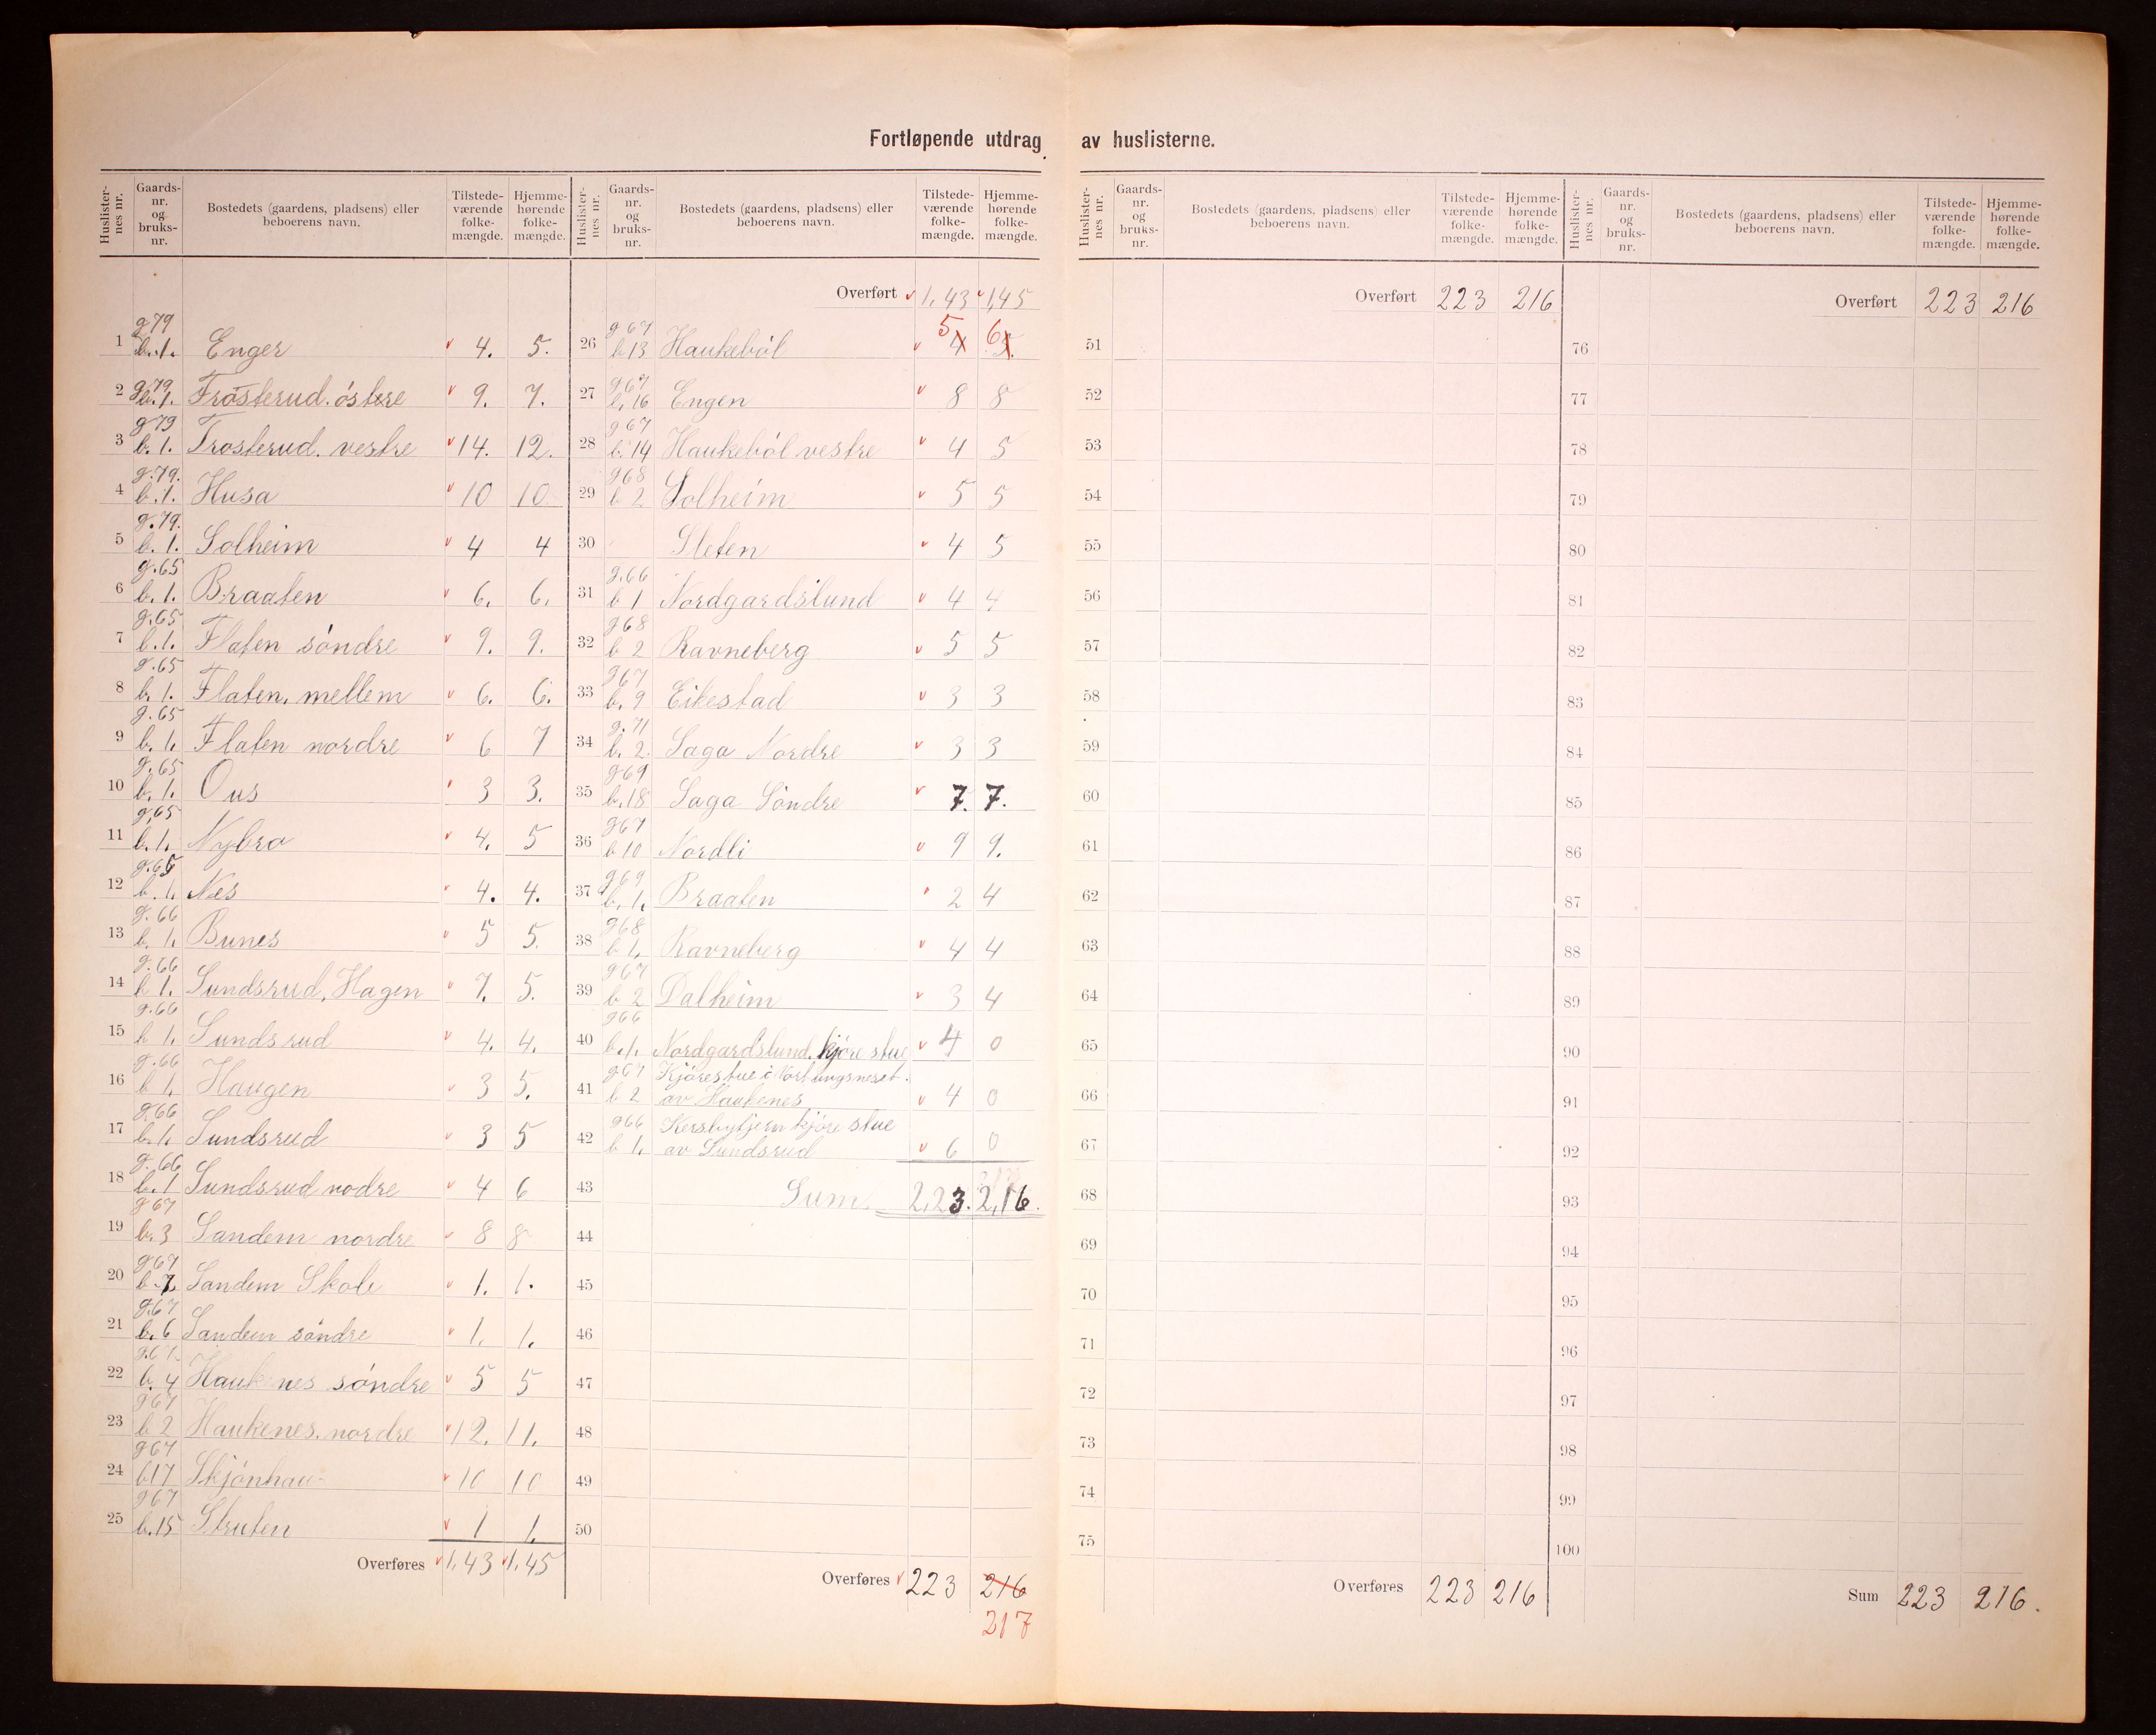 Fortløpende utdrag av huslisterne.
Huslister-nes nr. Gaards-nr. og bruks-nr. Bostedets (gaardens, pladsens) eller beboerens navn. Tilstede-værende folke-mængde. Hjemme-hørende folke-mængde.
1 g 79 b. 1. Enger 4. 5.
2 g. 79 b. 1. Trosterud. östre 9. 7.
3 g 79 b. 1. Trosterud. vestre 14. 12.
4 g. 79. b. 1. Husa 10 10
5 g. 79. b. 1. Solheim 4 4
6 g. 65 b. 1. Braaten 6. 6.
7 g. 65 b. 1. Flaten söndre 9. 9.
8 g. 65 b. 1. Flaten. mellem 6. 6.
9 g. 65 b. 1. Flaten nordre 6 7
10 g. 65 b. 1. Ous 3 3.
11 g. 65 b. 1. Nybro 4. 5
12 g. 65 b. 1. Nes 4. 4.
13 g. 66 b. 1. Bunes 5 5.
14 g. 66 b 1. Sundsrud, Hagen 7. 5.
15 g. 66 b 1. Sundsrud 4. 4.
16 g. 66 b 1. Haugen 3 5.
17 g. 66 b. 1. Sundsrud 3 5
18 g. 66 b. 1 Sundsrud nodre 4 6
19 g 67 b. 3 Sandem nordre 8 8
20 g 67 b. 7. Sandem Skole 1. 1.
21 g. 67 b. 6 Sandem söndre 1. 1.
22 g. 67 b. 4 Haukenes söndre 5 5
23 g 67 b 2 Haukenes. nordre 12. 11.
24 g 67 b 17 Skjönhau 10 10
25 g 67 b. 15 Struten 1 1.
Overføres 1,43 1,45
Huslister-nes nr. Gaards-nr. og bruks-nr. Bostedets (gaardens, pladsens) eller beboerens navn. Tilstede-værende folke-mængde. Hjemme-hørende folke-mængde.
Overført 1,43 1,45
26 g 67 b 13 Hauketöl 4 5 5. 6
27 g 67 b. 16 Engen 8 8
28 g 67 b. 14 Hauketöl vestre 4 5
29 g 68 b 2 Solheim 5 5
30 Sleten 4 5
31 g. 66 b 1 Nordgardslund 4 4
32 g 68 b 2 Ravneberg 5 5
33 g 67 b. 9 Eikestad 3 3
34 g. 71 b. 2. Saga Nordre 3 3
35 g 69 b. 18 Saga Söndre 7. 7.
36 g 67 b 10 Nordli 9 9.
37 g 69 b. 1. Braaten 2 4
38 g 68 b 1. Ravneberg 4 4
39 g 67 b 2 Dalheim 3 4
40 g 66 b. 1. Nordgardslund. kjöre stue 4 0
41 g 67 b 2 Kjörestue i
av Haukenes 4 0
42 g 66 b 1. kjöre stue
av Sundsrud 6 0
43 Sum. 2,23. 2,16.
44
45
46
47
48
49
50
Overføres 223 216
217
Huslister-nes nr. Gaards-nr. og bruks-nr. Bostedets (gaardens, pladsens) eller beboerens navn. Tilstede-værende folke-mængde. Hjemme-hørende folke-mængde.
Overført 223 216
51
52
53
54
55
56
57
58
59
60
61
62
63
64
65
66
67
68
69
70
71
72
73
74
75
Overføres 223 216
Huslister-nes nr. Gaards-nr. og bruks-nr. Bostedets (gaardens, pladsens) eller beboerens navn. Tilstede-værende folke-mængde. Hjemme-hørende folke-mængde.
Overført 223 216
76
77
78
79
80
81
82
83
84
85
86
87
88
89
90
91
92
93
94
95
96
97
98
99
100
Sum 223 216.